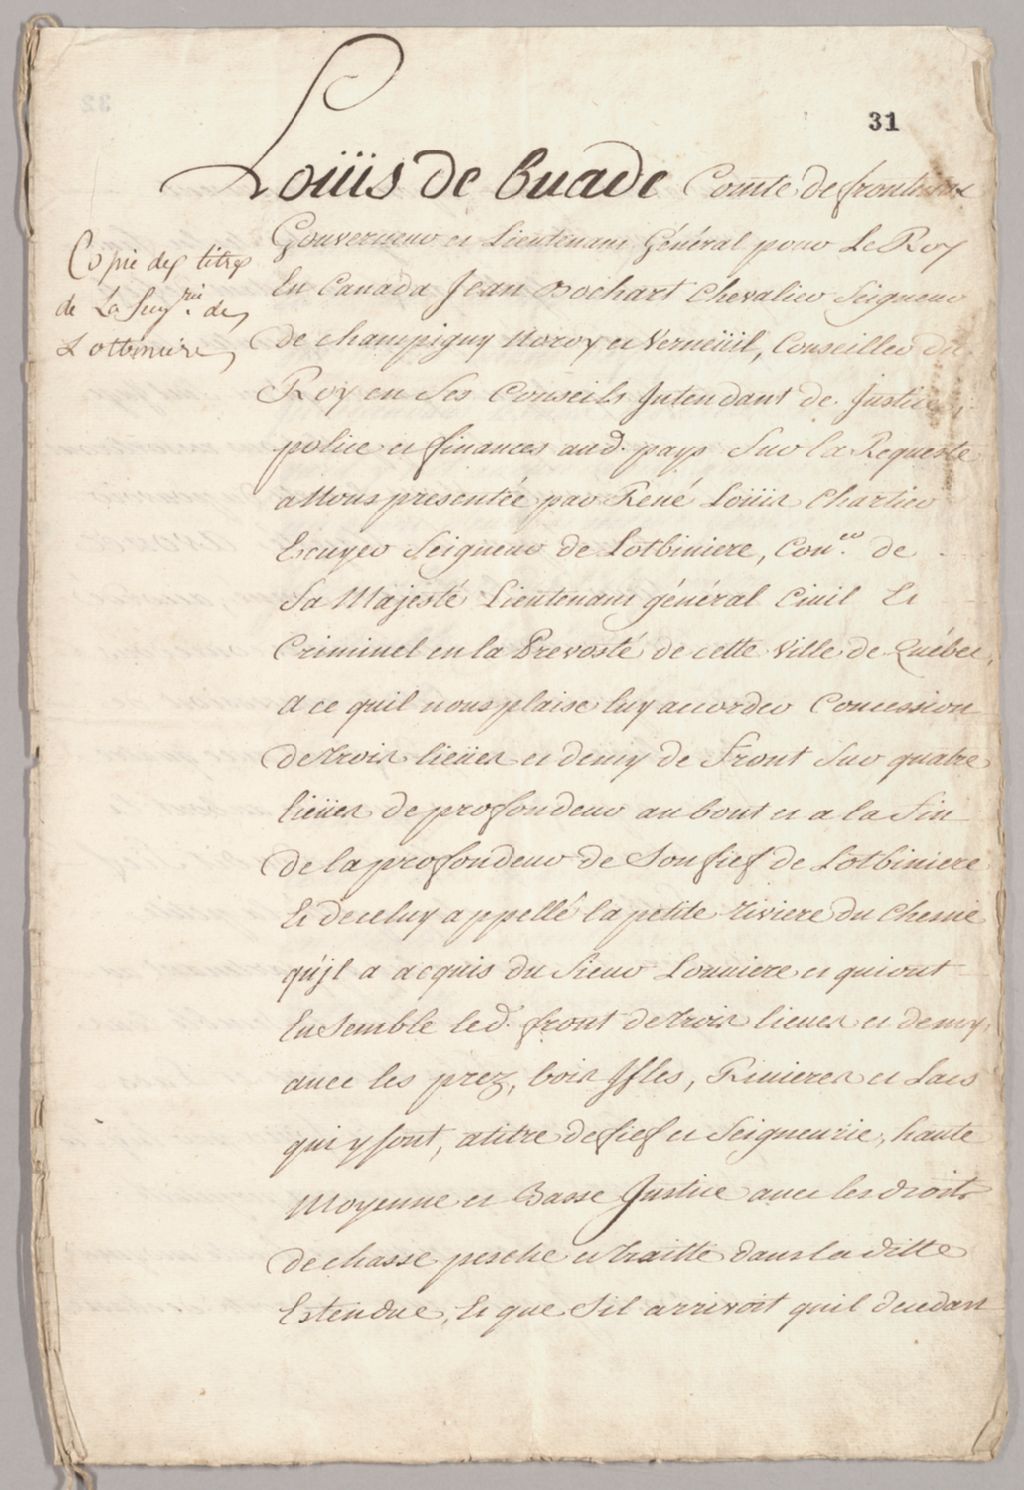 31
Loüis de buade Comte de frontenac
Copie des titres
de La Seig.rie de
Lotbiniere
Gouverneur et Lieutenant Général pour Le Roy
En Canada Jean Bochart Chevalier Seigneur
de champigny Noroy et Verneüil, Conseiller du
Roy en Ses Conseils Intendant de Justice,
police et finances aud. pays Sur la Requeste
a Nous presentée par René Loüis Chartier
Ecuyer Seigneur de Lotbiniere, Con.er de
Sa Majesté Lieutenant général Civil Et
Criminel en la Prevosté de cette Ville de Québec,
A ce quil nous plaise luy accorder Concession
de trois lieües et demy de Front Sur quatre
lieües de profondeur au bout et a la Fin
de la profondeur de Son fief de Lotbiniere
Et de celuy appellé la petite riviere du Chesne
qu'jl a acquis du Sieur Louviere et qui ont
EnSemble led. front de trois lieues et demy,
avec les prez, bois Isles, Rivieres et Lacs
qui y sont, a titre de fief et Seigneurie, haute
Moyenne et Basse Justice avec les droits
de chasse pesche et traitte dans la ditte
Estendue, Et que S'il arrivoit quil decedast